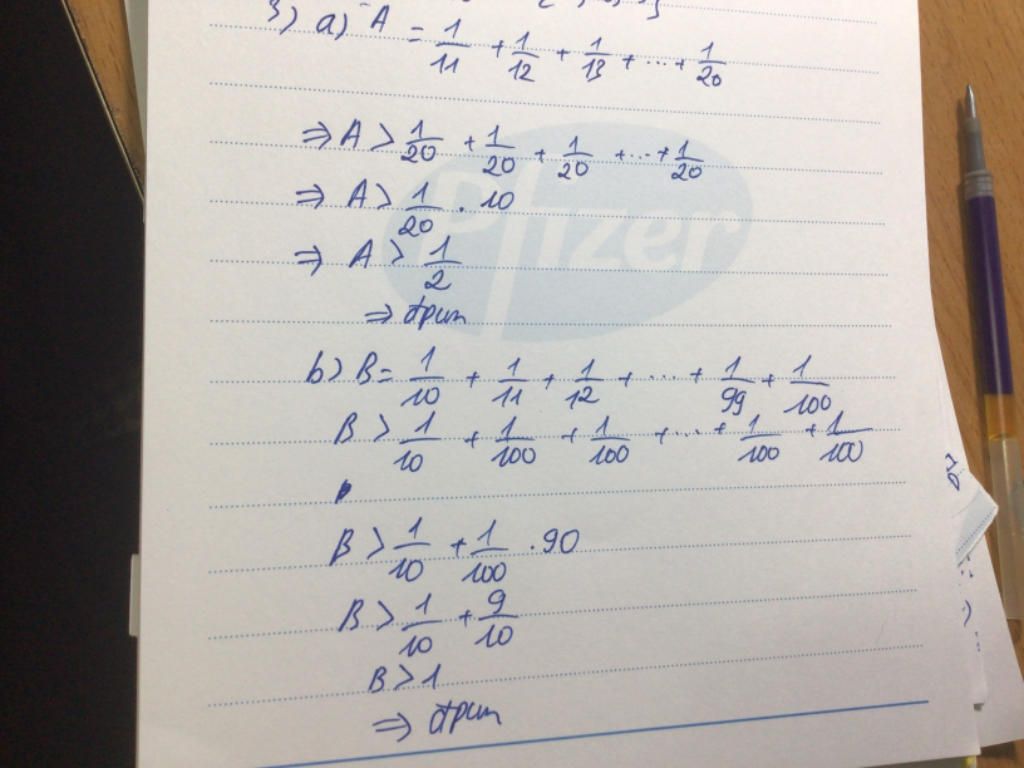 3) a) A = 1/11 + 1/12 + 1/13 + ... + 1/20
⇒ A > 1/20 + 1/20 + 1/20 + ... + 1/20
⇒ A > 1/20 . 10
⇒ A > 1/2
⇒ đpcm
Pfizer
b) B = 1/10 + 1/11 + 1/12 + ... + 1/99 + 1/100
B > 1/10 + 1/100 + 1/100 + ... + 1/100 + 1/100
B > 1/10 + 1/100 . 90
B > 1/10 + 9/10
B > 1
⇒ đpcm